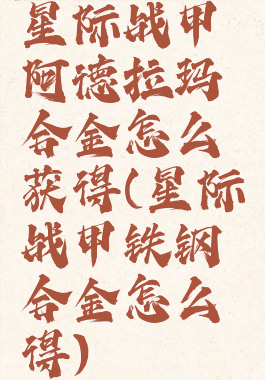 星际战甲
阿德拉玛
合金怎么
获得(星际
战甲铁钢
合金怎么
得)